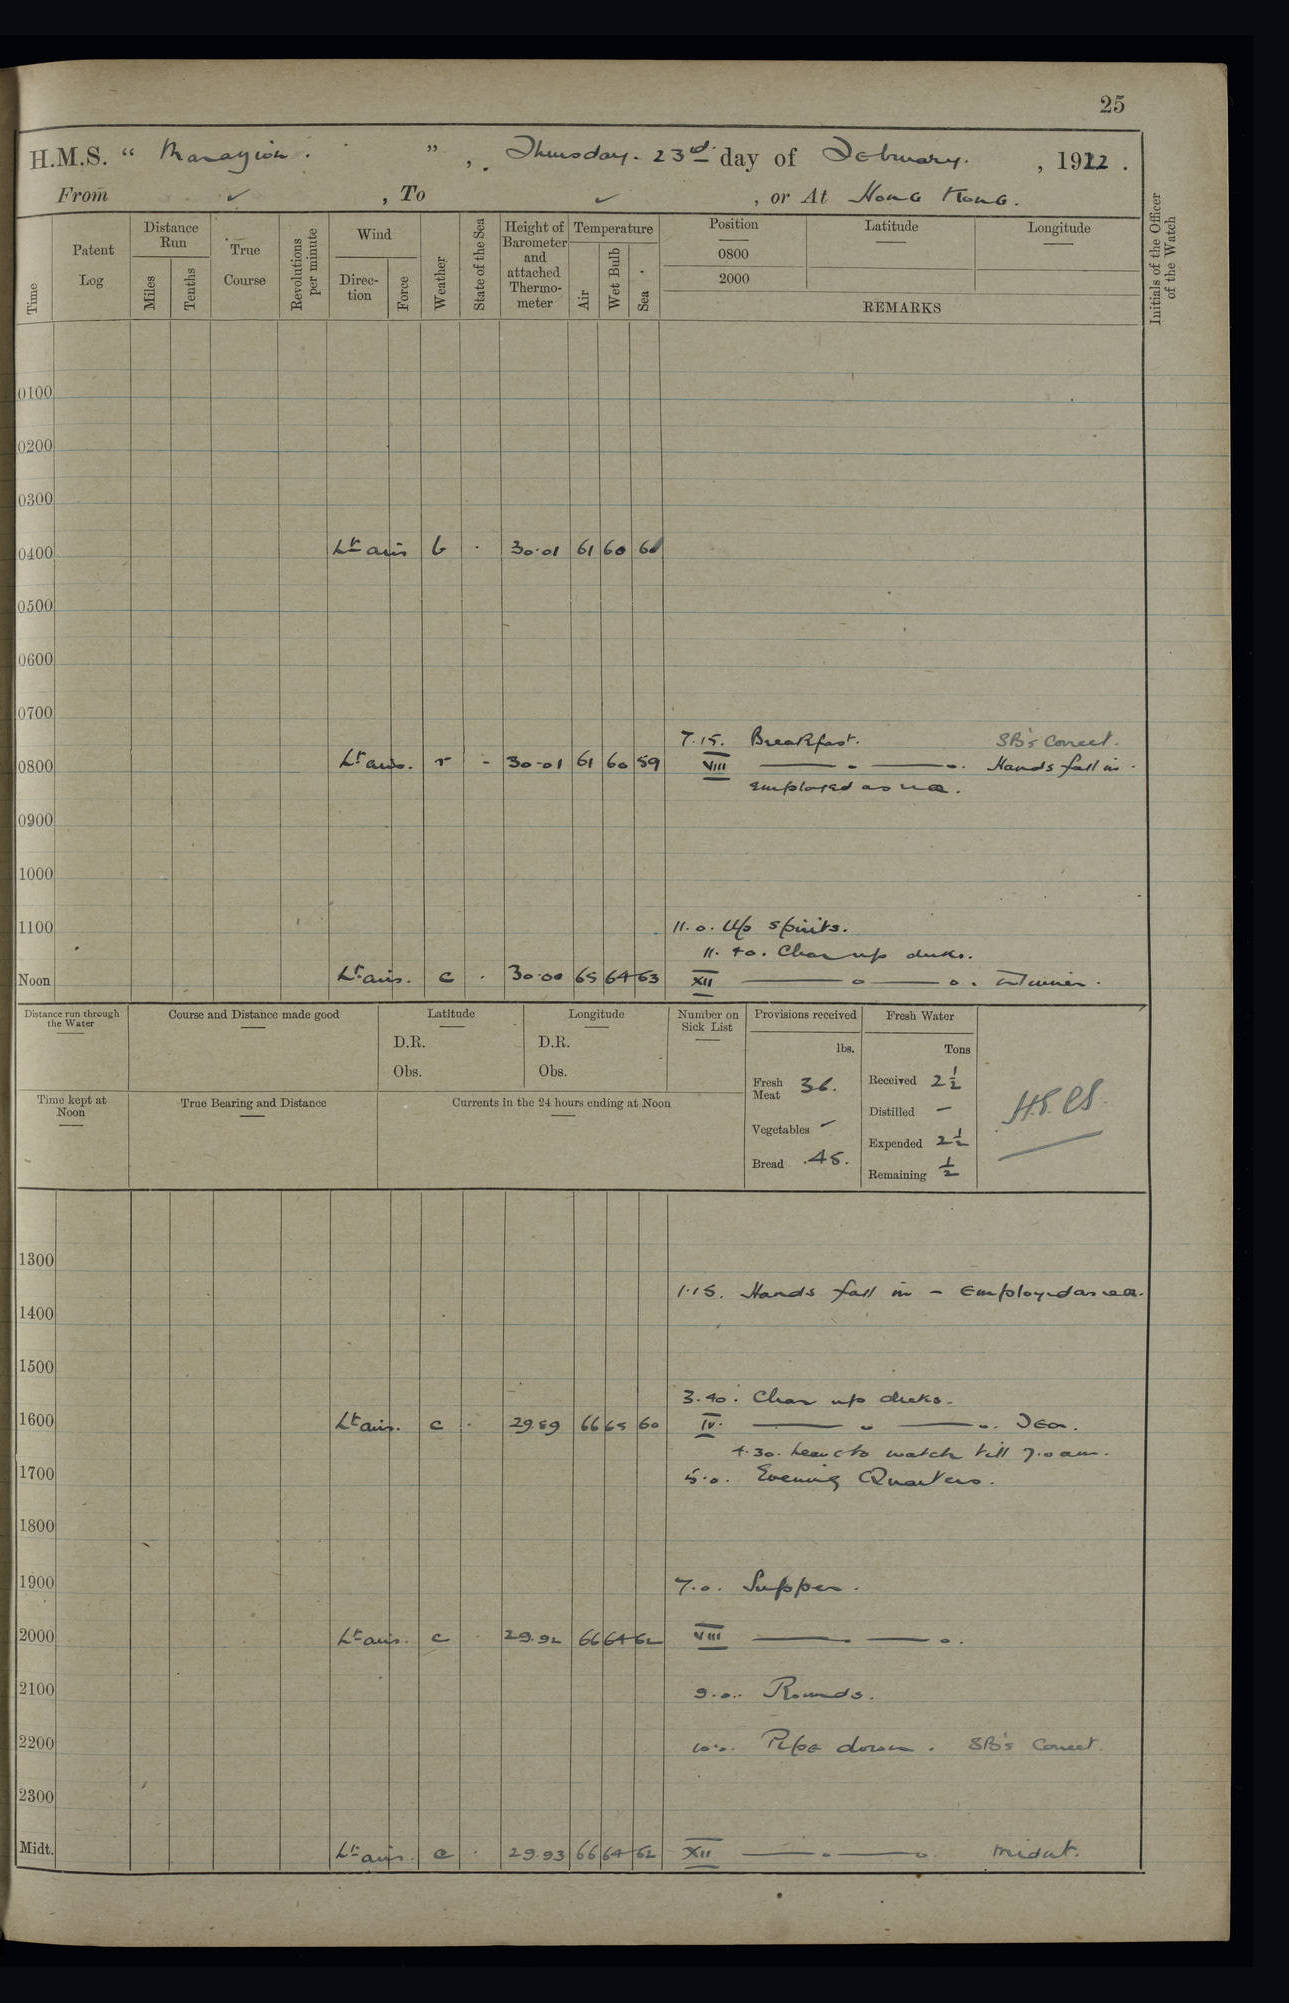 25
H.M.S. “ Marazion. ” , Thursday. 23rd day of February. , 1922 .
From ✓ , To ✓ , or At Hong Kong.
Time
Patent Log
Distance Run
Miles
Tenths
True Course
Revolutions per minute
Wind
Direction
Force
Weather
State of the Sea
Height of Barometer and attached Thermometer
Temperature
Air
Wet Bulb
Sea
Position
Latitude
Longitude
0800
2000
REMARKS
Initials of the Officer of the Watch
0100
0200
0300
0400 Lt airs b . 30.01 61 60 60
0500
0600
0700
7.15. Breakfast. SB's Correct.
0800 Lt airs. r - 30.01 61 60 59 VIII Hands fall in.
employed as req.
0900
1000
1100 11.0. Up spirits.
11.40. Clear up decks.
Noon Lt airs. c . 30.00 65 64 63 XII Dinner.
Distance run through the Water
Course and Distance made good
Latitude
D.R.
Obs.
Longitude
D.R.
Obs.
Number on Sick List
Provisions received
lbs.
Fresh Meat 36.
Vegetables –
Bread 45.
Fresh Water
Tons
Received 2½
Distilled –
Expended 2½
Remaining ½
Time kept at Noon
True Bearing and Distance
Currents in the 24 hours ending at Noon
1300
1.15. Hands fall in – Employed as req.
1400
1500
3.40. Clear up decks.
1600 Lt airs. c . 29.89 66 65 60 IV. Tea.
4.30. Leave to watch till 7.0 am.
1700 5.0. Evening Quarters.
1800
1900 7.0. Supper.
2000 Lt airs. c . 29.92 66 64 62 VIII
2100 9.0. Rounds.
2200 10.0. Pipe down. SB's Correct.
2300
Midt. Lt airs. c . 29.93 66 64 62 XII midnt.